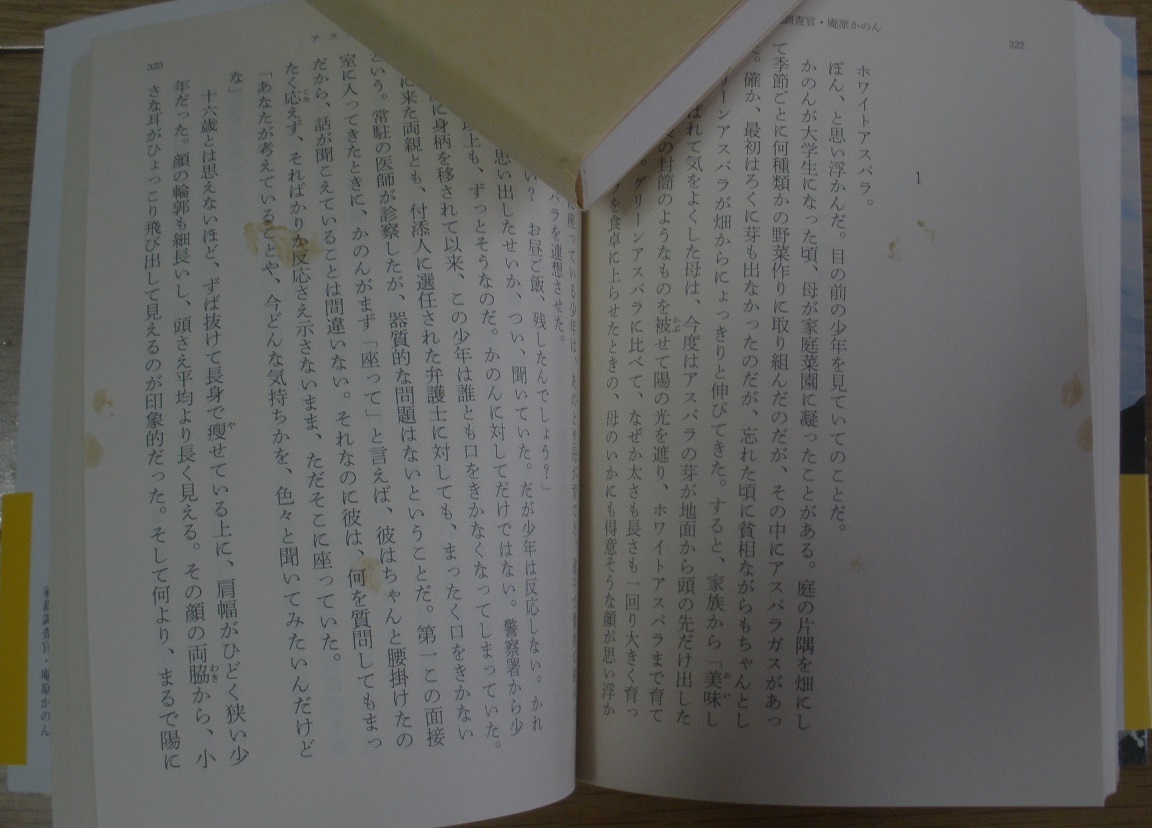 調査官・庵原かのん
322
1
ホワイトアスパラ。
ぽん、と思い浮かんだ。目の前の少年を見ていてのことだ。
かのんが大学生になった頃、母が家庭菜園に凝ったことがある。庭の片隅を畑にし
て季節ごとに何種類かの野菜作りに取り組んだのだが、その中にアスパラガスがあっ
。確か、最初はろくに芽も出なかったのだが、忘れた頃に貧相ながらもちゃんとし
リーンアスパラが畑からにょっきりと伸びてきた。すると、家族から「美味し
ばれて気をよくした母は、今度はアスパラの芽が地面から頭の先だけ出した
の封筒のようなものを被せて陽の光を遮り、ホワイトアスパラまで育て
。グリーンアスパラに比べて、なぜか太さも長さも一回り大きく育っ
を食卓に上らせたときの、母のいかにも得意そうな顔が思い浮か
323
アス
っている少年は、あのとき母が育てた
ラを連想させた。
い？　お昼ご飯、残したんでしょう？」
思い出したせいか、つい、聞いていた。だが少年は反応しない。かれ
以上も、ずっとそうなのだ。かのんに対してだけではない。警察署から少
に身柄を移されて以来、この少年は誰とも口をきかなくなってしまっていた。
に来た両親とも、付添人に選任された弁護士に対しても、まったく口をきかない
という。常駐の医師が診察したが、器質的な問題はないということだ。第一この面接
室に入ってきたときに、かのんがまず「座って」と言えば、彼はちゃんと腰掛けたの
だから、話が聞こえていることは間違いない。それなのに彼は、何を質問してもまっ
たく応えず、そればかりか反応さえ示さないまま、ただそこに座っていた。
「あなたが考えていることや、今どんな気持ちかを、色々と聞いてみたいんだけど
な」
十六歳とは思えないほど、ずば抜けて長身で痩せている上に、肩幅がひどく狭い少
年だった。顔の輪郭も細長いし、頭さえ平均より長く見える。その顔の両脇から、小
さな耳がひょっこり飛び出して見えるのが印象的だった。そして何より、まるで陽に
家庭調査官・庵原かのん